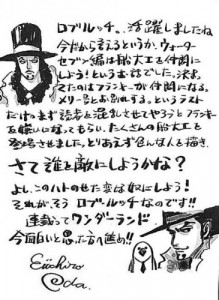 ロブ・ルッチ。活躍しましたね
今だから言えるというか、ウォーター
セブン編は船大工を仲間に
しよう!というお話でした。決ま
ってたのはフランキーが仲間になる。
メリー号とお別れする。というラスト
だけ。まず読者を混乱させてやろうとフランキー
を嫌いになってもらい、たくさんの船大工を
登場させました。とりあえず色んな人を描き、
さて誰を敵にしようかな?
よし。このハトのせた変な奴にしよう!
それが、そう ロブ・ルッチなのです!!
連載ってワンダーランド
今面白いと思った方へ進め!!
Eiichiro
Oda.